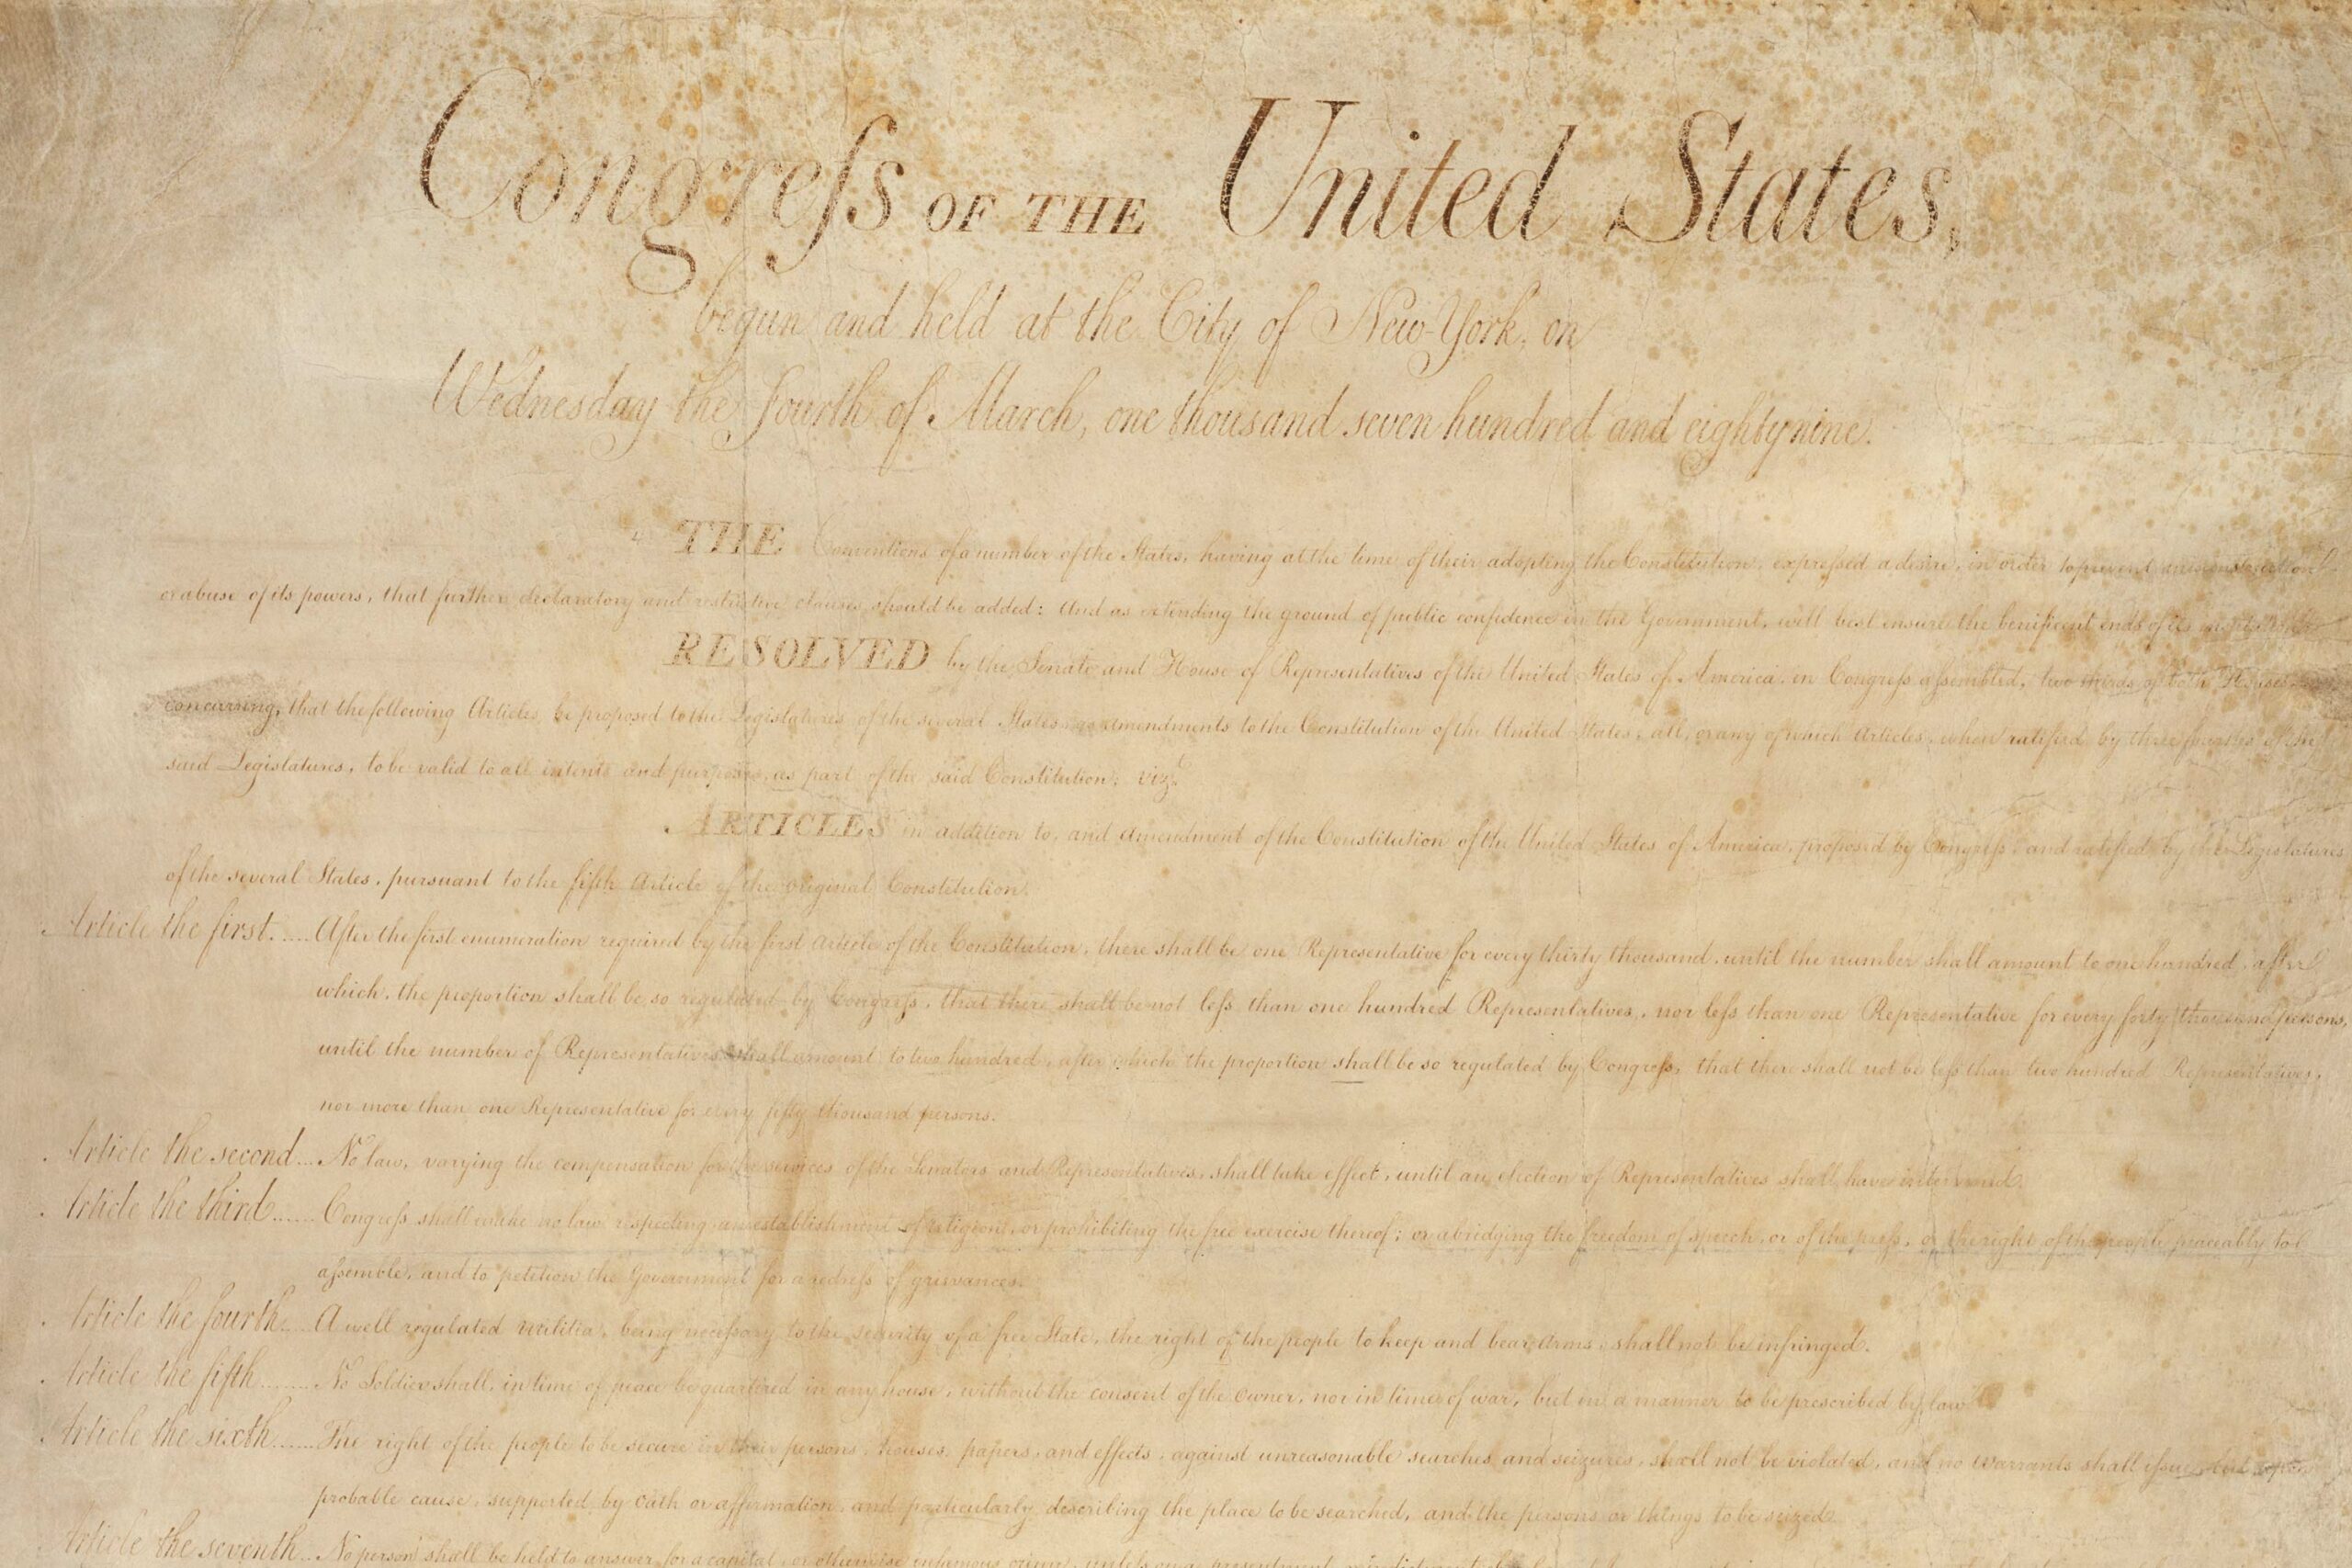 Congreſs OF THE United States,
begun and held at the City of New-York, on
Wednesday the fourth of March, one thousand seven hundred and eighty nine.
THE Conventions of a number of the States, having at the time of their adopting the Constitution, expreſsed a desire, in order to prevent misconstruction
or abuse of its powers, that further declaratory and restrictive clauses should be added: And as extending the ground of public confidence in the Government, will best ensure the benificent ends of its
RESOLVED by the Senate and House of Representatives of the United States of America, in Congreſs aſsembled, two thirds of both Houses
concurring, that the following Articles be proposed to the Legislatures of the several States, as amendments to the Constitution of the United States, all, or any of which Articles, when ratified by three fourths of the
said Legislatures, to be valid to all intents and purposes, as part of the said Constitution; vizt
ARTICLES in addition to, and Amendment of the Constitution of the United States of America, proposed by Congreſs, and ratified by the Legislatures
of the several States, pursuant to the fifth Article of the original Constitution.
Article the first..... After the first enumeration required by the first Article of the Constitution, there shall be one Representative for every thirty thousand, until the number shall amount to one hundred, after
which, the proportion shall be so regulated by Congreſs, that there shall be not leſs than one hundred Representatives, nor leſs than one Representative for every forty thousand persons,
until the number of Representatives shall amount to two hundred, after which the proportion shall be so regulated by Congreſs, that there shall not be leſs than two hundred Representatives,
nor more than one Representative for every fifty thousand persons.
Article the second... No law, varying the compensation for the services of the Senators and Representatives, shall take effect, until an election of Representatives shall have intervened.
Article the third...... Congreſs shall make no law respecting an establishment of religion, or prohibiting the free exercise thereof; or abridging the freedom of speech, or of the preſs, or the right of the people peaceably to
aſsemble, and to petition the Government for a redreſs of grievances.
Article the fourth..... A well regulated Militia, being neceſsary to the security of a free State, the right of the people to keep and bear Arms, shall not be infringed.
Article the fifth........ No Soldier shall, in time of peace be quartered in any house, without the consent of the Owner, nor in time of war, but in a manner to be prescribed by law.
Article the sixth...... The right of the people to be secure in their persons, houses, papers, and effects, against unreasonable searches and seizures, shall not be violated, and no Warrants shall iſsue, but upon
probable cause, supported by Oath or affirmation, and particularly describing the place to be searched, and the persons or things to be seized.
Article the seventh... No person shall be held to answer for a capital, or otherwise infamous crime, unleſs on a presentment or indictment